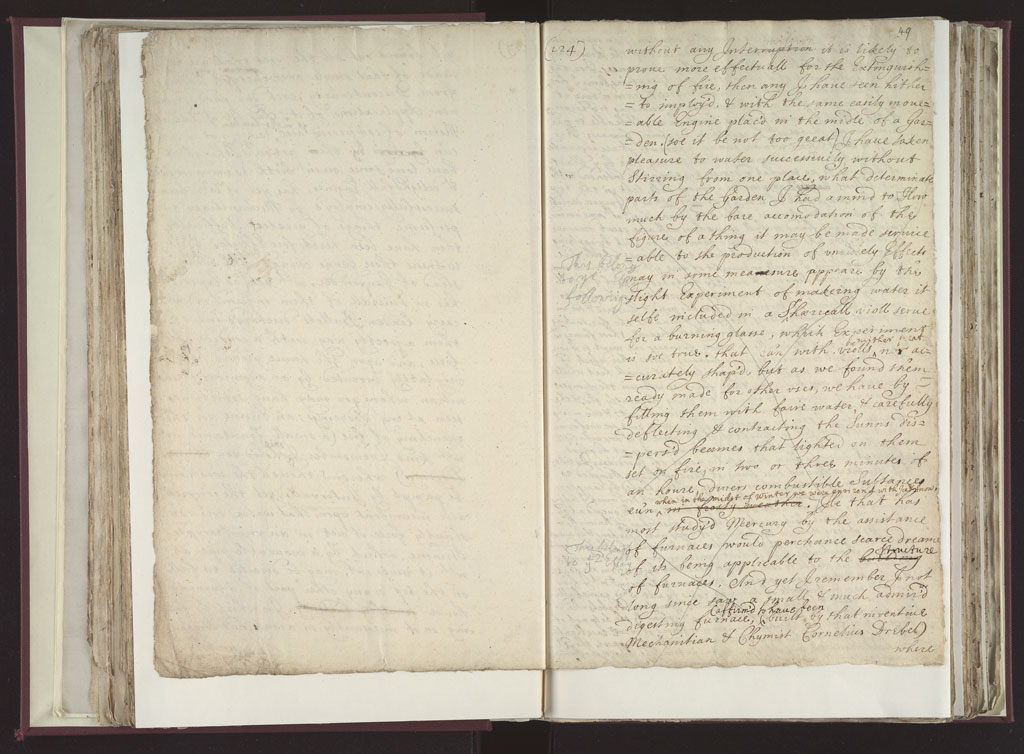 49
(224)
without any Interruption it is likely to
prove more effectuall for the Extinguish=
=ing of fire, then any I have seen hither
=to imploy'd. & with the same easily move=
=able Engine plac'd in the midle of a Gar=
=den, (soe it be not too great) I have taken
pleasure to water successively without
Stirring from one place, what determinate
parts of the Garden I had a mind to. How
much by the bare accomodation of the
figure of a thing it may be made service
=able to the production of Effects
may in some measure appeare by the
slight Experiment of makeing water it
selfe included in a Sphæricall violl serve
for a burning glasse, which Experiment
is soe true, that with violls neither
=curately shap'd, but as we found them
ready made for other uses, we have by =
filling them with faire water, & carefully
deflecting & contracting the Sunns dis=
=pers'd beames that lighted on them
set on fire, in two or three minutes of
an houre, divers combustible Substances
when in the midst of winter we were environ'd with
ev'n in frosty weather. He that has
most study'd Mercury by the assistance
of furnaces would perchance scarce dreame
of its being applicable to the building structure
of furnaces. And yet I remember I not
long since saw a small & much admir'd
(affirm'd to have been
digesting furnace, built by that inventive
Mechanitian & Chymist Cornelius Drebel)
where